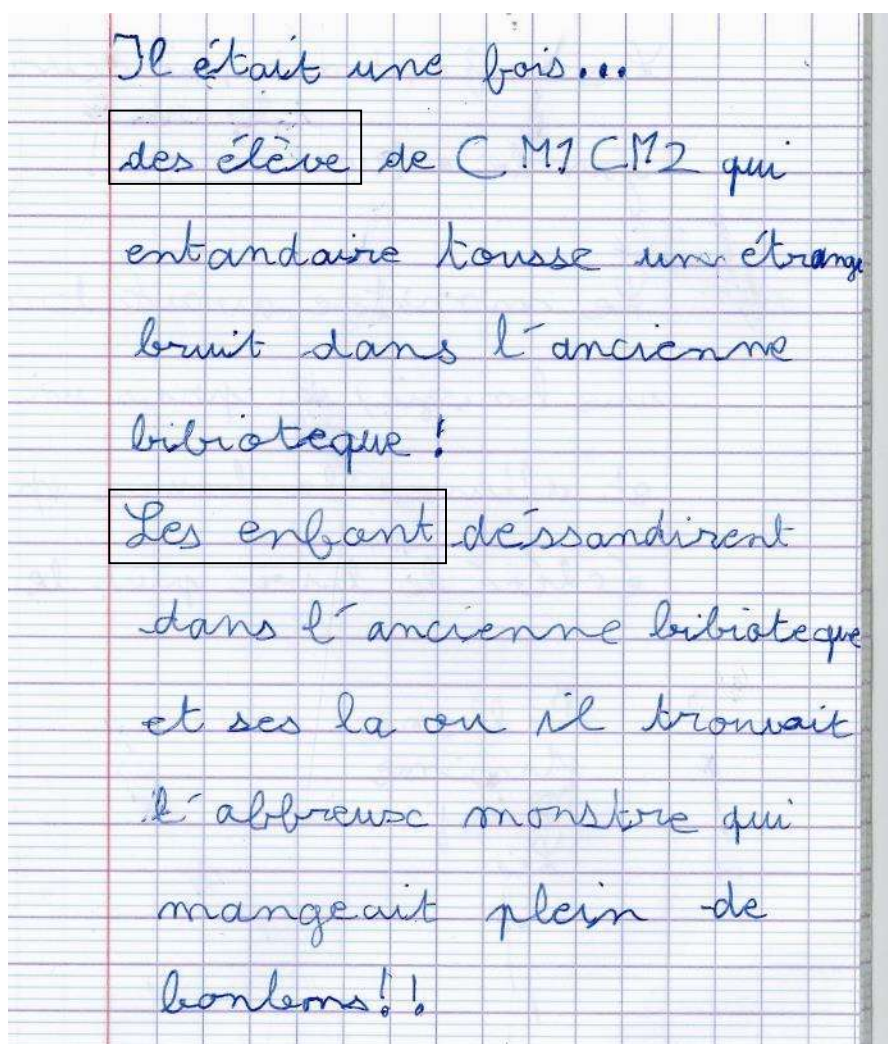 Il était une fois...
des élève de CM1 CM2 qui
entandaire tousse un étrange
bruit dans l'ancienne
bibioteque !
Les enfant déssandirent
dans l'ancienne bibioteque
et ses la ou il trouvait
l'affreuse monstre qui
mangeait plein de
bonbons !!